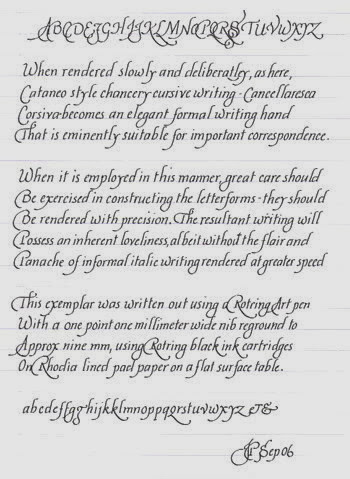 ABCDEFGHIJKLMNOPQRSTUVWXYZ
When rendered slowly and deliberatley, as here,
Cataneo style chancery cursive writing - Cancellaresca
Corsiva - becomes an elegant formal writing hand
That is eminently suitable for important correspondence.
When it is employed in this manner, great care should
Be exercised in constructing the letterforms - they should
Be rendered with precision. The resultant writing will
Possess an inherent loveliness, albeit without the flair and
Panache of informal italic writing rendered at greater speed
This exemplar was written out using a Rotring Art pen
With a one point one millimeter wide nib reground to
Approx nine mm, using Rotring black ink cartridges
On Rhodia lined pad paper on a flat surface table.
Sep 06